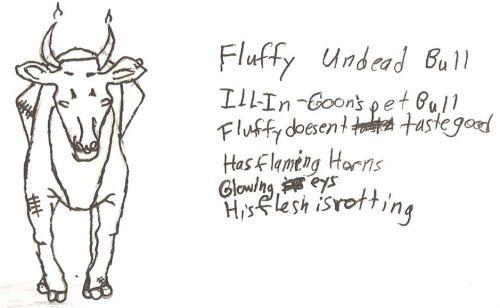 Fluffy Undead Bull
Ill-In-Goon's pet Bull
Fluffy doesent taste good
Has flaming Horns
Glowing eys
His flesh is rotting